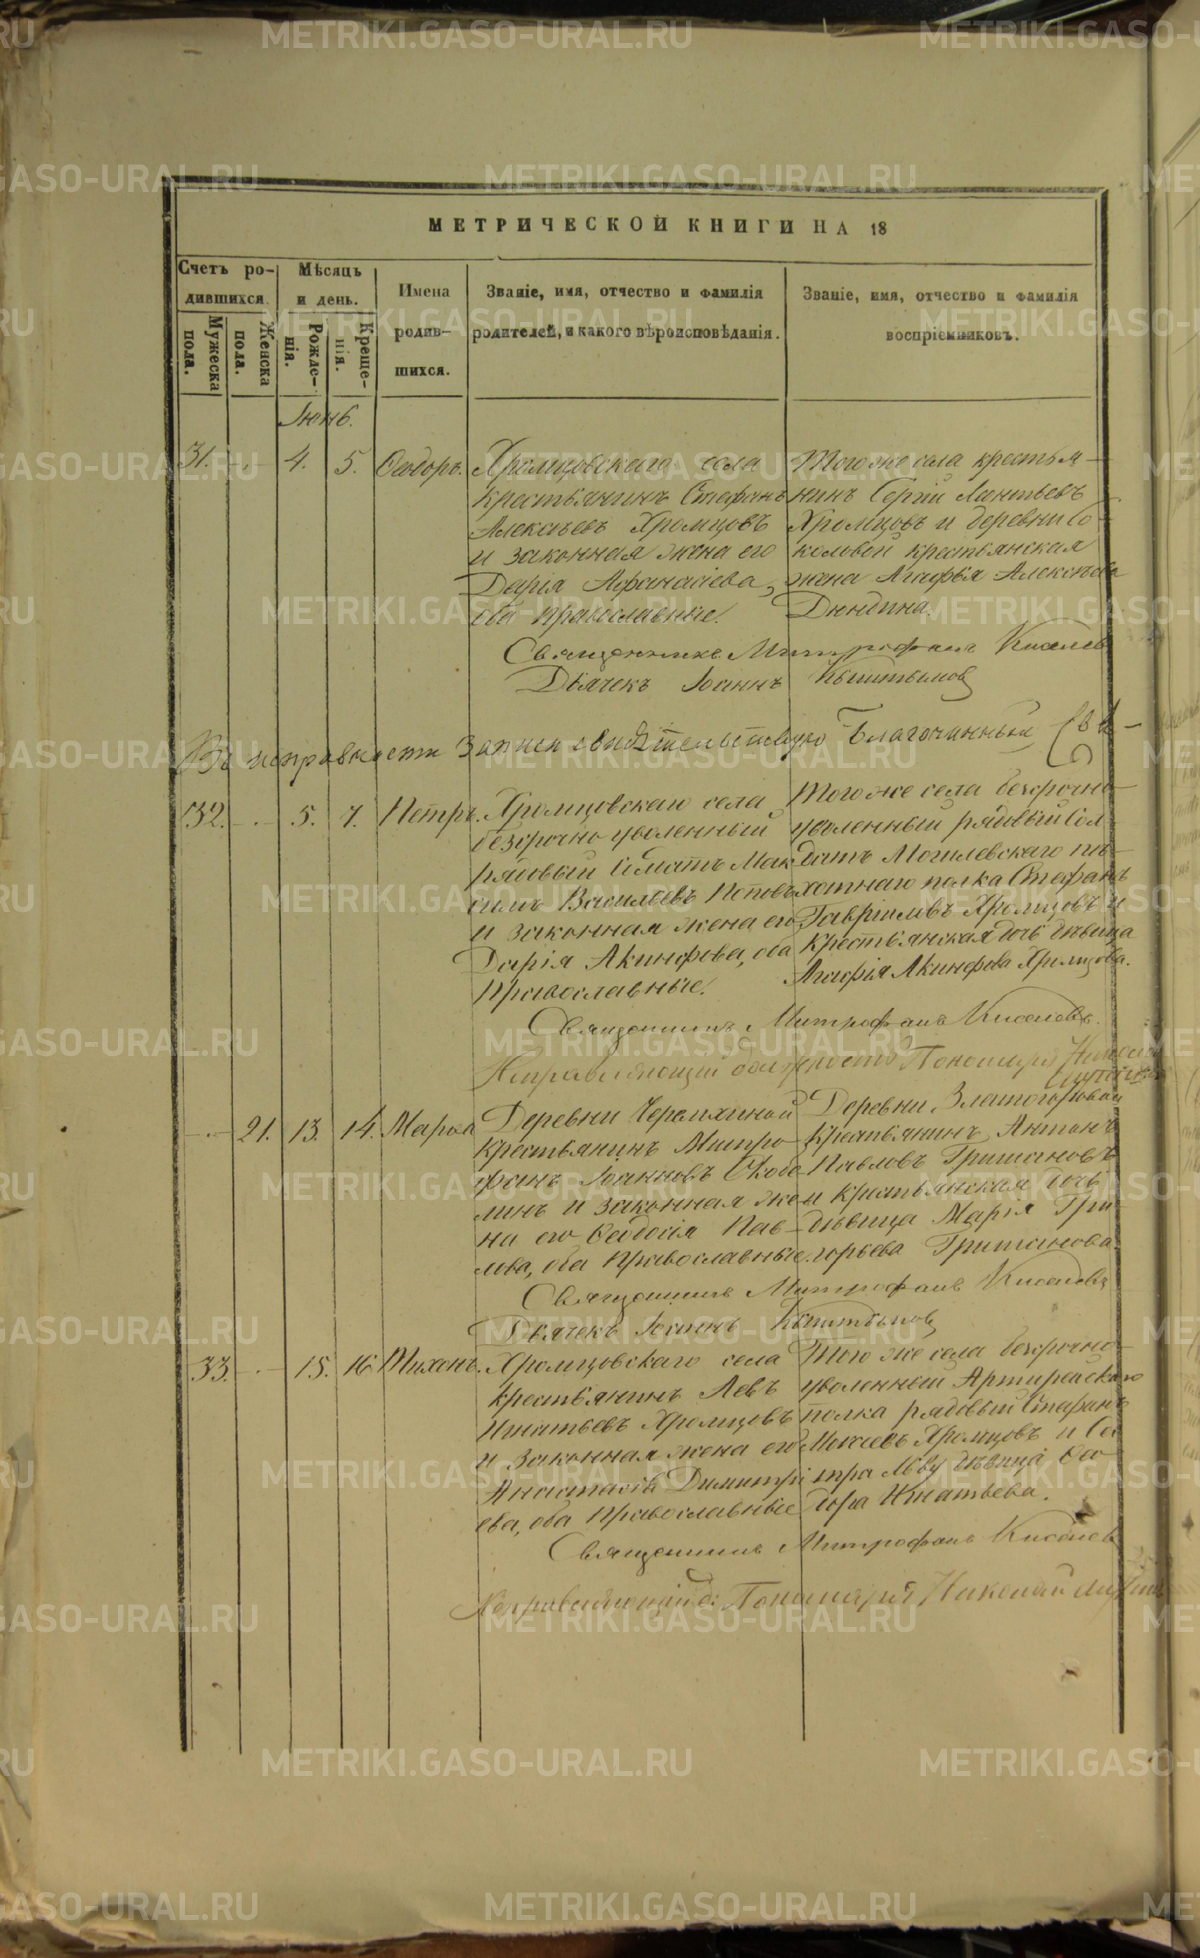 МЕТРИЧЕСКОЙ КНИГИ НА 18
Счетъ ро-
дившихся.
Мужеска пола.
Женска пола.
Мѣсяцъ
и день.
Рожде-
нія.
Креще-
нія.
Имена
родив-
шихся.
Званіе, имя, отчество и фамилія
родителей, и какого вѣроисповѣданія.
Званіе, имя, отчество и фамилія
воспріемниковъ.
Іюнь.
31. 4. 5. Ѳеодоръ.
Хромцовскаго села
крестьянинъ Стефанъ
Алексѣевъ Хромцовъ
и законная жена его
Дарія Афанасіева,
оба православные.
Того же села крестья-
нинъ Сергій Леонтьевъ
Хромцовъ и деревни Со-
коловой крестьянская
жена Агафья Алексѣева
Дюндина.
Священникъ Митрофанъ Киселевъ
Дьячекъ Іоаннъ
Въ исправности записи свидѣтельствую Благочинный
32. 5. 7. Петръ.
Хромцовскаго села
безсрочно уволенный
рядовый солдатъ Мак-
симъ Васильевъ Поповъ
и законная жена его
Дарія Акинфова, оба
Православные.
Того же села безсрочно-
уволенный рядовый Сол-
датъ Могилевскаго пѣ-
хотнаго полка Стефанъ
Гавріиловъ Хромцовъ и
крестьянская дочь дѣвица
Агафія Акинфова Хромцова.
Священникъ Митрофанъ Киселевъ.
Исправляющій должность Пономаря Николай
21. 13. 14. Марія
Деревни Черемхиной
крестьянинъ Митро-
фанъ Іоанновъ Скобе-
линъ и законная же-
на его Ѳеодосія Пав-
лова, оба Православные.
Деревни Златогоровой
Крестьянинъ Антонъ
Павловъ Гришановъ
и крестьянская дочь
дѣвица Марія Гри-
горьева Гришанова.
Священникъ Митрофанъ Киселевъ
Дьячекъ Іоаннъ
33. 15. 16 Тихонъ.
Хромцовскаго села
крестьянинъ Левъ
Игнатьевъ Хромцовъ
и законная жена его
Анастасія Димитрі-
ева, оба Православные
Того же села безсрочно-
уволенный
полка рядовый Стефанъ
Моисеевъ Хромцовъ и Се-
стра Льву дѣвица Ѳео-
дора Игнатьева.
Священникъ Митрофанъ Киселевъ
Исправляющій д: Пономаря Николай
METRIKI.GASO-URAL.RU